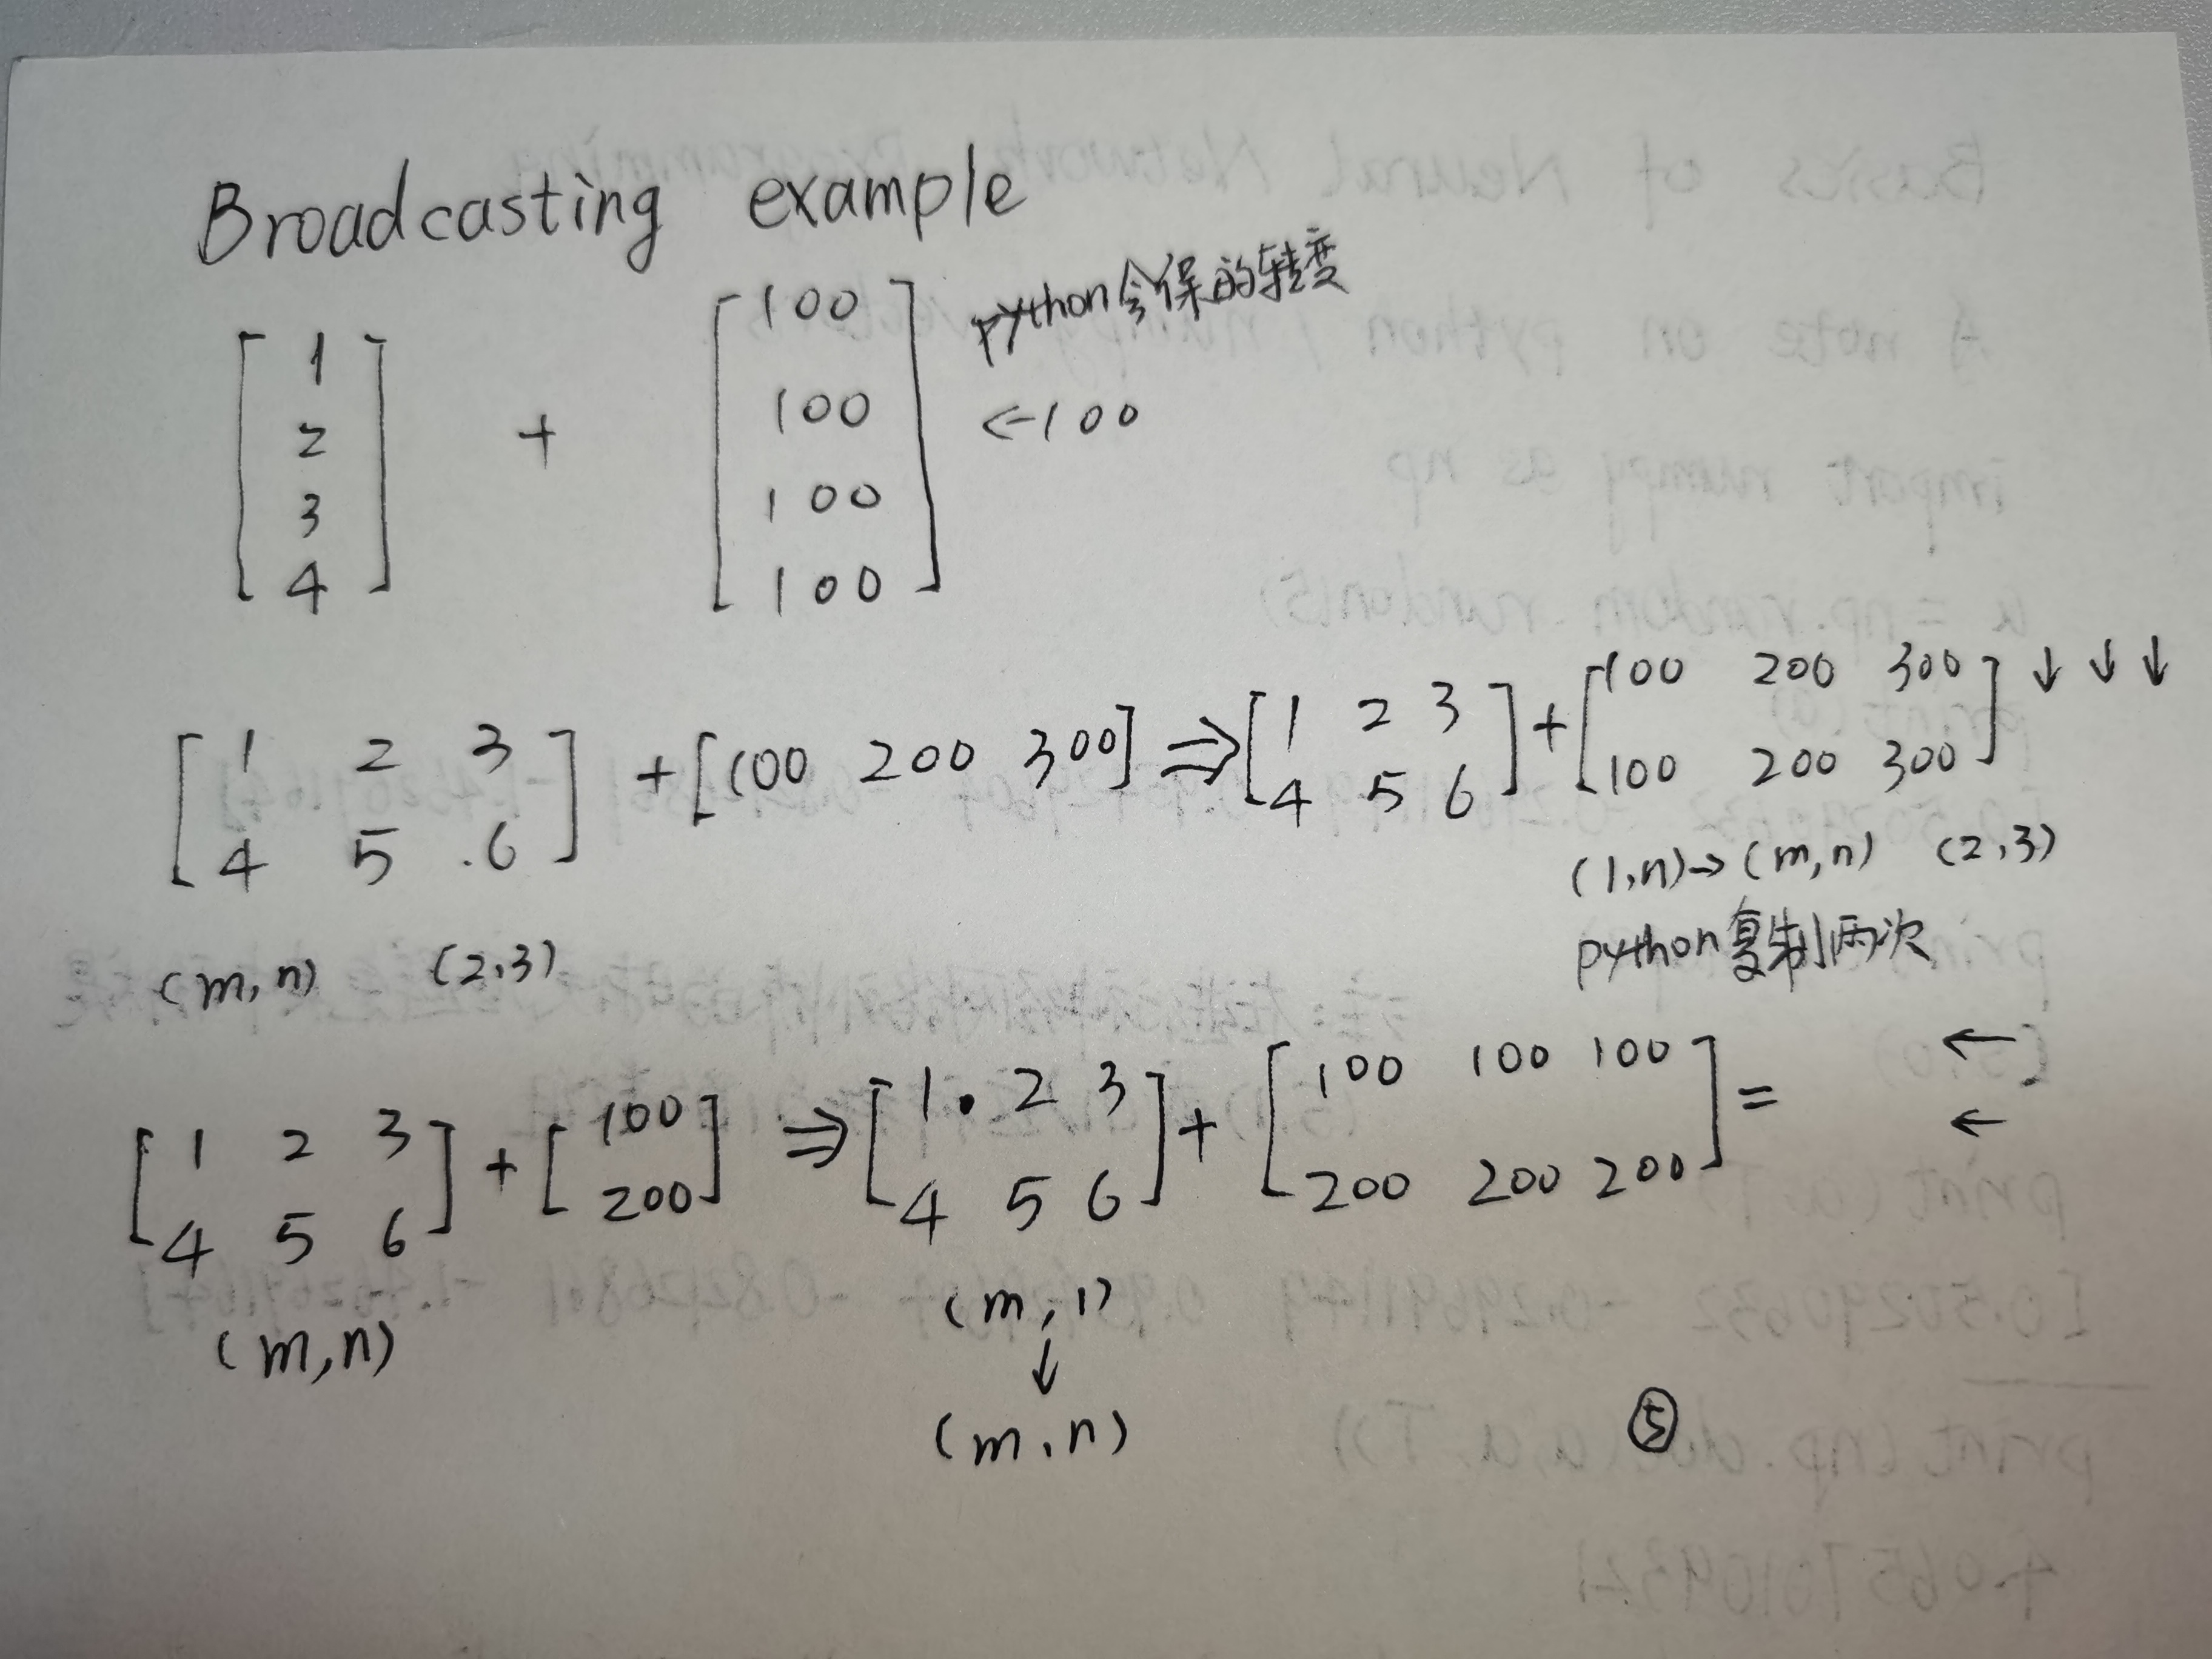 Broadcasting example
python会保的转变
[1 2 3 4] + [100 100 100 100] ←100
[1 2 3 4 5 .6] + [100 200 300] ⇒ [1 2 3 4 5 6] + [100 200 300 100 200 300] ↓ ↓ ↓
(m,n) (2,3) (1,n)→(m,n) (2,3)
python复制两次
[1 2 3 4 5 6] + [100 200] ⇒ [1. 2 3 4 5 6] + [100 100 100 200 200 200] = ← ←
(m,n) (m,1)
↓
(m,n)
⑤